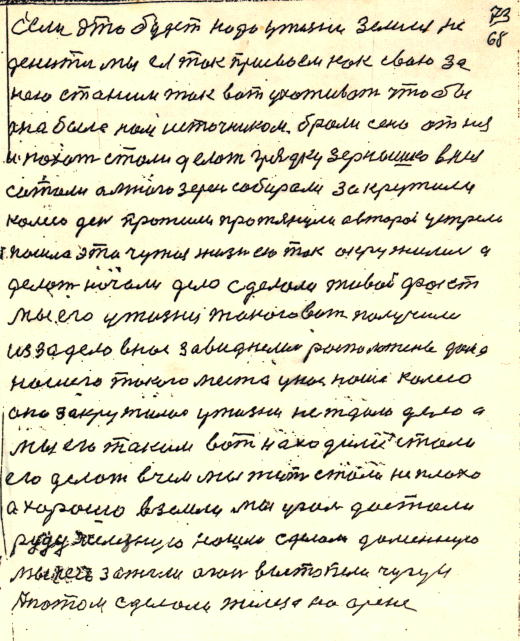 73
68
если это будет надо у жизни земля не
денится мы ея так присвоем как свою за
нею станим так вот ухоживат что бы
она была нам источником. брали сено от ней
и пахат стали делат грядку зернышко в ния
сотоли а много зерен собирали закрутили
колесо ден прожили протянули а второй устрела
пошла эта чужая жизнею так окружили и а
делат начали дело сделали живой факт
мы его у жизни такого вот получили
из за дело в нас завиднелис росположене дажа
нашего такого места у нас наше колесо
оно закрутилос у жизни не ждало дело а
мы его таким вот находили стали
его делат в чем мы жит стали не плохо
а хорошо в земли мы угол достали
руду железную нашли сделали доменную
мы зажгли огон вытопили чугун
Апотом сделали железа на арене